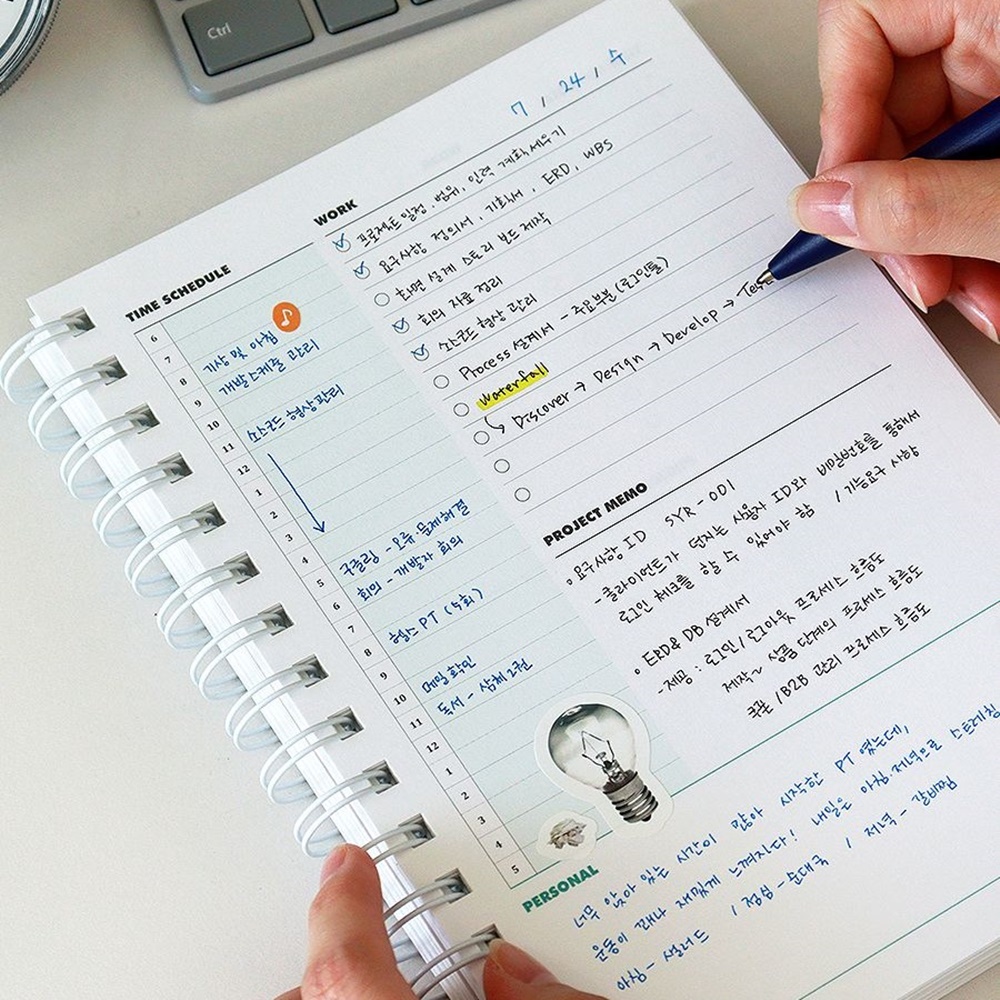 Ctrl
7 / 24 / 수
WORK
프로젝트 일정, 범위, 인력 계획 세우기
요구사항 정의서, 기획서, ERD, WBS
화면 설계 스토리 보드 제작
회의 자료 정리
소스코드 형상 관리
Process 설계서 - 주요부분 (로그인 툴)
Waterfall
Discover → Design → Develop → Test
TIME SCHEDULE
6
7
8 기상 및 아침
9 개발스케줄 관리
10
11 소스코드 형상관리
12
1
2
3
4
5 구글링 - 오류·문제 해결
6 회의 - 개발자 회의
7
8 헬스 PT (4회)
9
10 메일 확인
11 독서 - 삼체 2권
12
1
2
3
4
5
PROJECT MEMO
요구사항 ID SYR - 001
- 클라이언트가 던지는 사용자 ID와 비밀번호를 통해서
로그인 체크를 할 수 있어야 함 / 기능요구 사항
ERD & DB 설계서
- 제공 : 로그인 / 로그아웃 프로세스 흐름도
제작~ 상품 단계의 프로세스 흐름도
쿠폰 / B2B 관리 프로세스 흐름도
PERSONAL
너무 앉아 있는 시간이 많아 시작한 PT 였는데,
운동이 꽤나 재밌게 느껴지다! 내일은 아침·저녁으로 스트레칭
아침 - 샐러드 / 점심 - 순대국 / 저녁 - 갈비찜